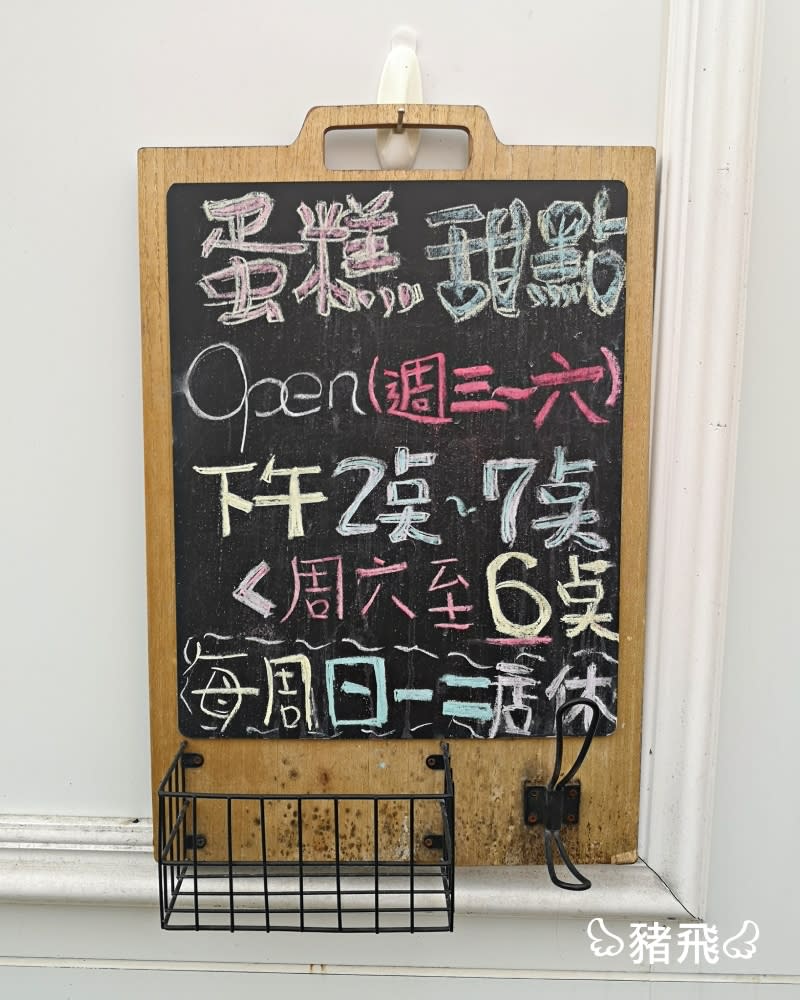 蛋糕,,,甜點
Open(週三~六)
下午2点~7点
<周六至6点
每周日一二店休
豬飛